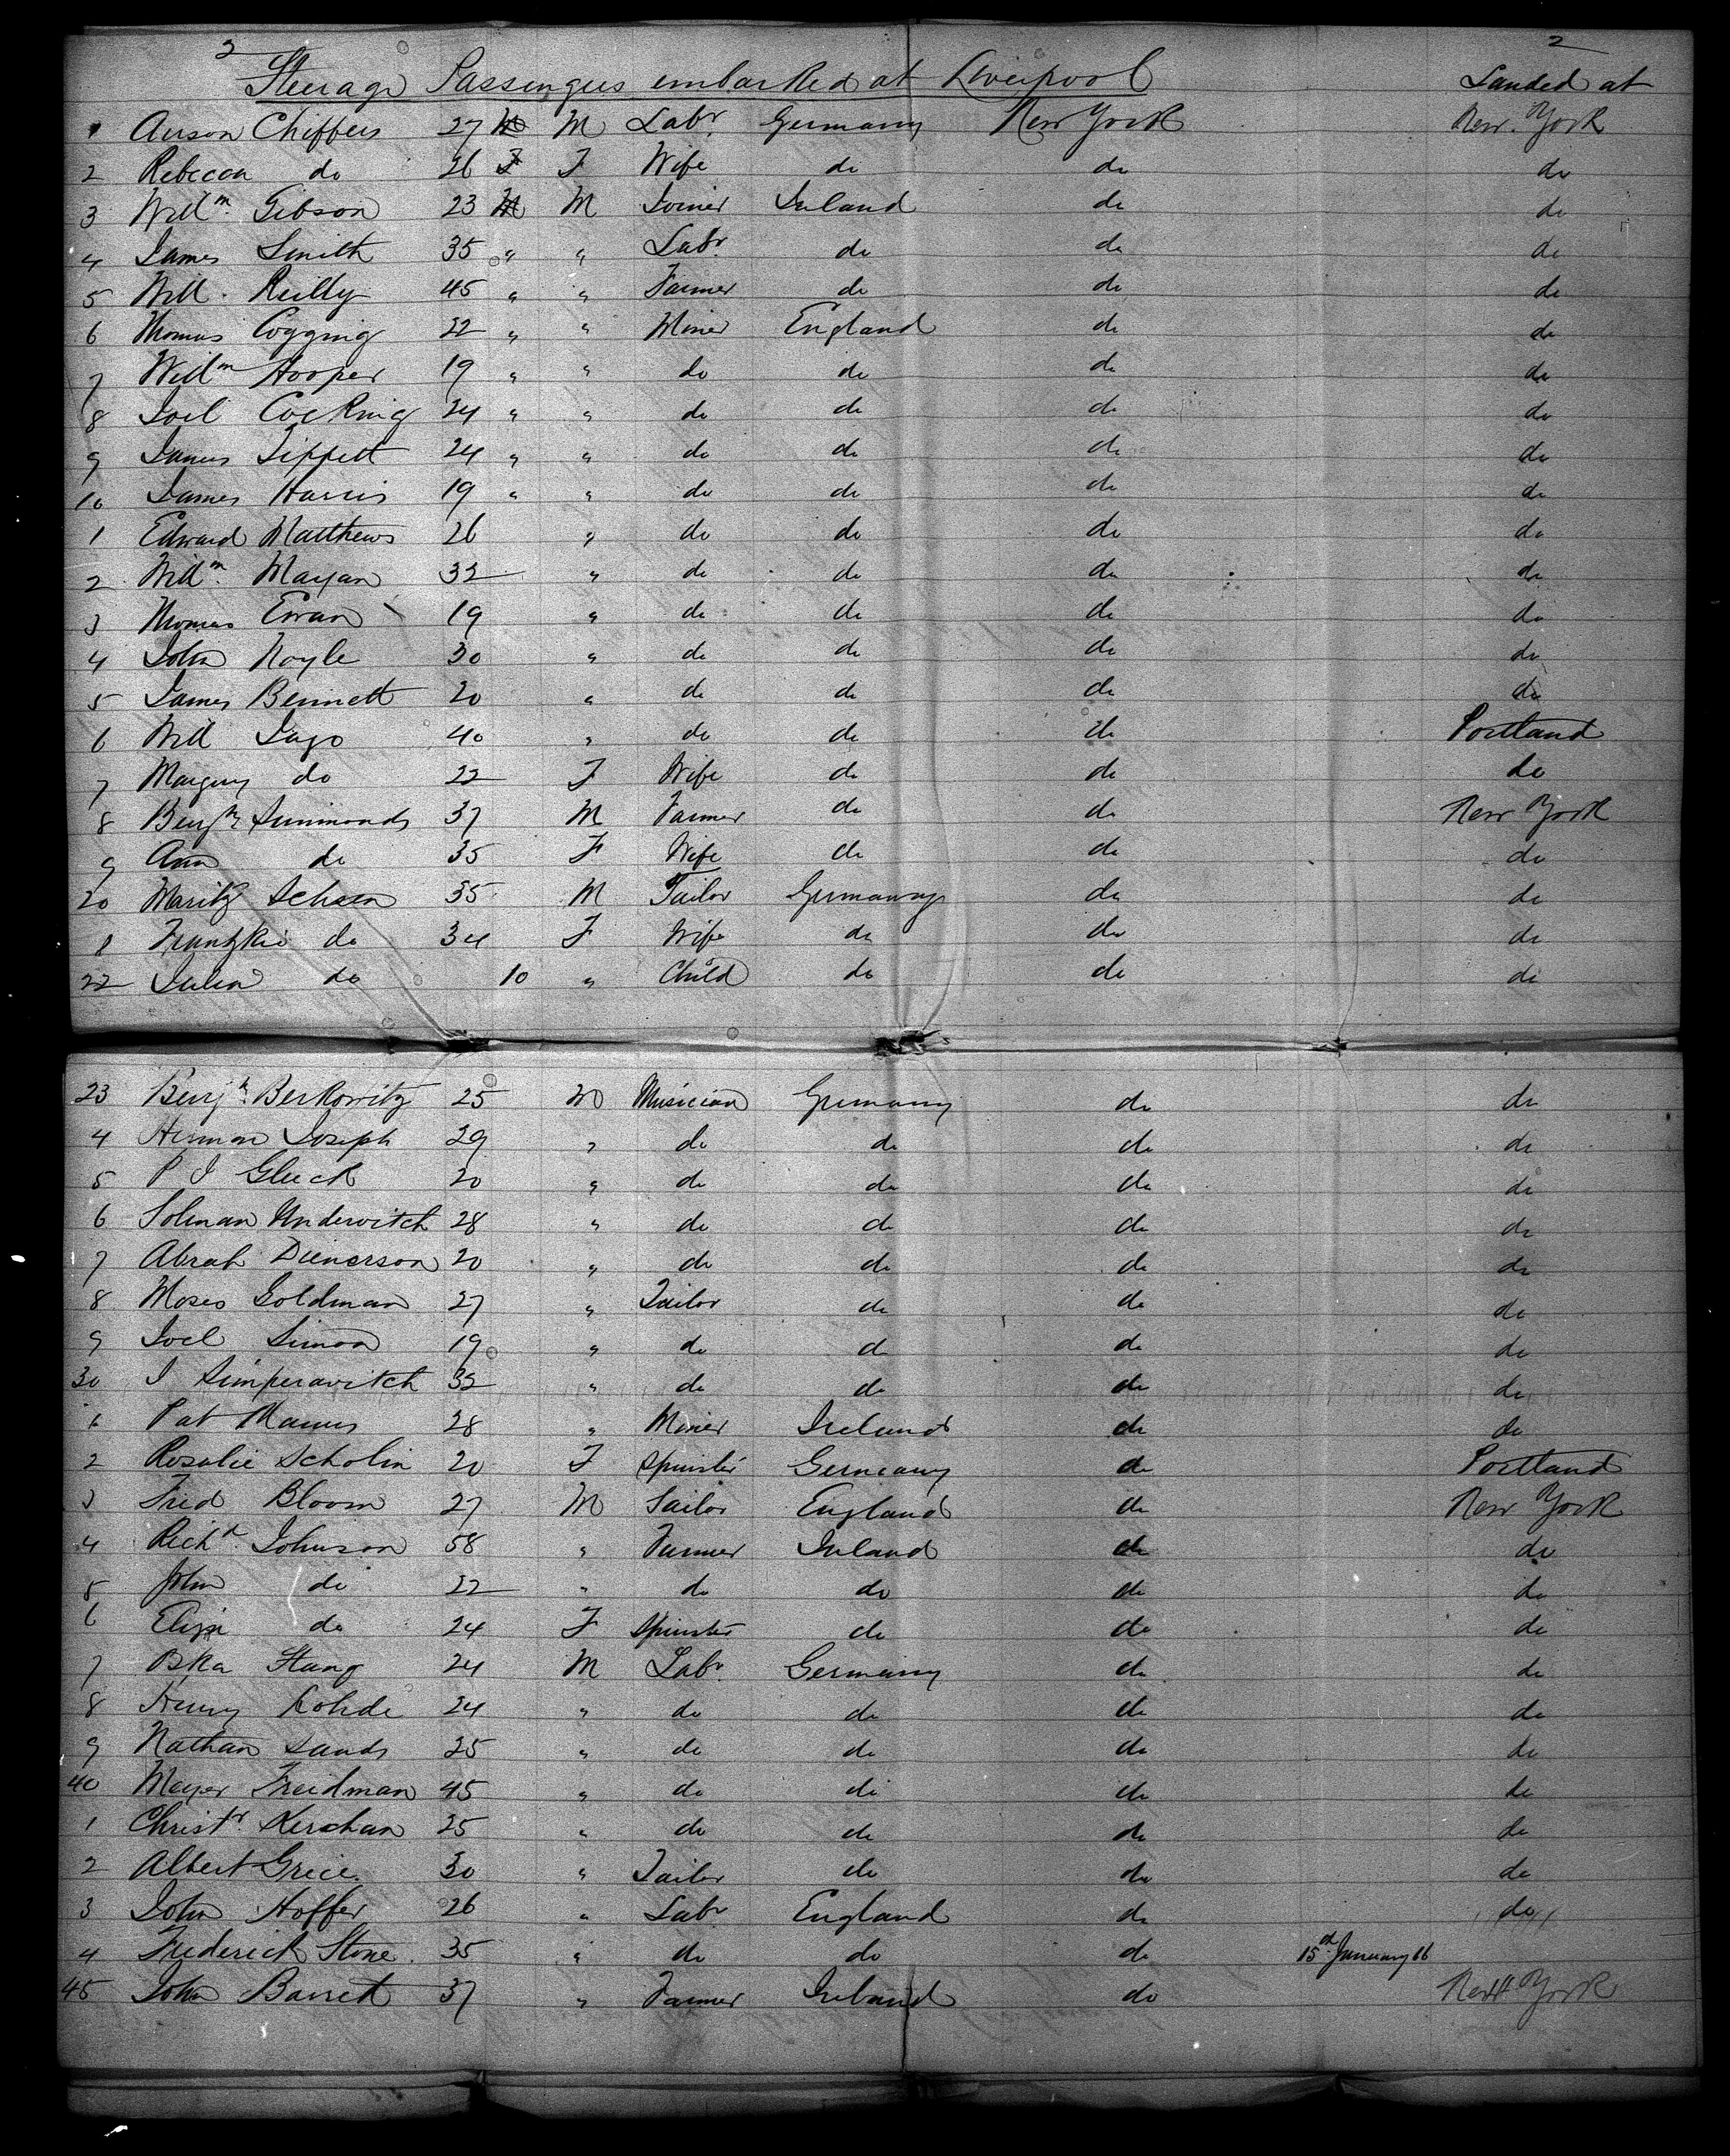 2 2
Steerage Passengers embarked at Liverpool Landed at
1 Anson Chiffers 27 M M Labr. Germany New York New York
2 Rebecca do 26 F F Wife do do do
3 Willm. Gibson 23 M M Joiner Ireland do do
4 James Smith 35 " " Labr. do do do
5 Will. Reilly 45 " " Farmer do do do
6 Thomas Cogging 22 " " Miner England do do
7 Willm Hooper 19 " " do do do do
8 Joel Cocking 24 " " do do do do
9 James Tippett 24 " " do do do do
10 James Harris 19 " " do do do do
1 Edward Matthews 26 " do do do do
2 Willm. Mayan 32 " do do do do
3 Thomas Evan 19 " do do do do
4 John Noyle 30 " do do do do
5 James Bennett 20 " do do do do
6 Will Jago 40 " do do do Portland
7 Margery do 22 F Wife do do do
8 Benjn. Simmonds 37 M Farmer do do New York
9 Ann do 35 F Wife do do do
20 Maritz 35 M Tailor Germany do do
1 do 34 F Wife do do do
22 Julia do 10 " Child do do do
23 Benjn. Berkowitz 25 M Musician Germany do do
4 Herman Joseph 29 " do do do do
5 P J Gluck 20 " do do do do
6 Solman Underwitch 28 " do do do do
7 Abrah Dienerson 20 " do do do do
8 Moses Goldman 27 " Tailor do do do
9 Joel Simon 19 " do do do do
30 J Simperavitch 32 " do do do do
1 Pat 28 " Miner Ireland do do
2 Rosalie Scholin 20 F Spinster Germany do Portland
3 Fred Bloom 27 M Sailor England do New York
4 Richd. Johnson 58 " Farmer Ireland do do
5 John do 22 " do do do do
6 Eliza do 24 F Spinster do do do
7 Stang 24 M Labr Germany do do
8 Henry Rohde 24 " do do do do
9 Nathan Sands 25 " do do do do
40 Mayer Freidman 45 " do do do do
1 Christr. Kerchan 25 " do do do do
2 Albert Greice. 30 " Tailor do do do
3 John Hoffer 26 " Labr England do do
4 Frederick Stone. 35 " do do do 15th January 66
45 John Barrett 37 " Farmer Ireland do New York